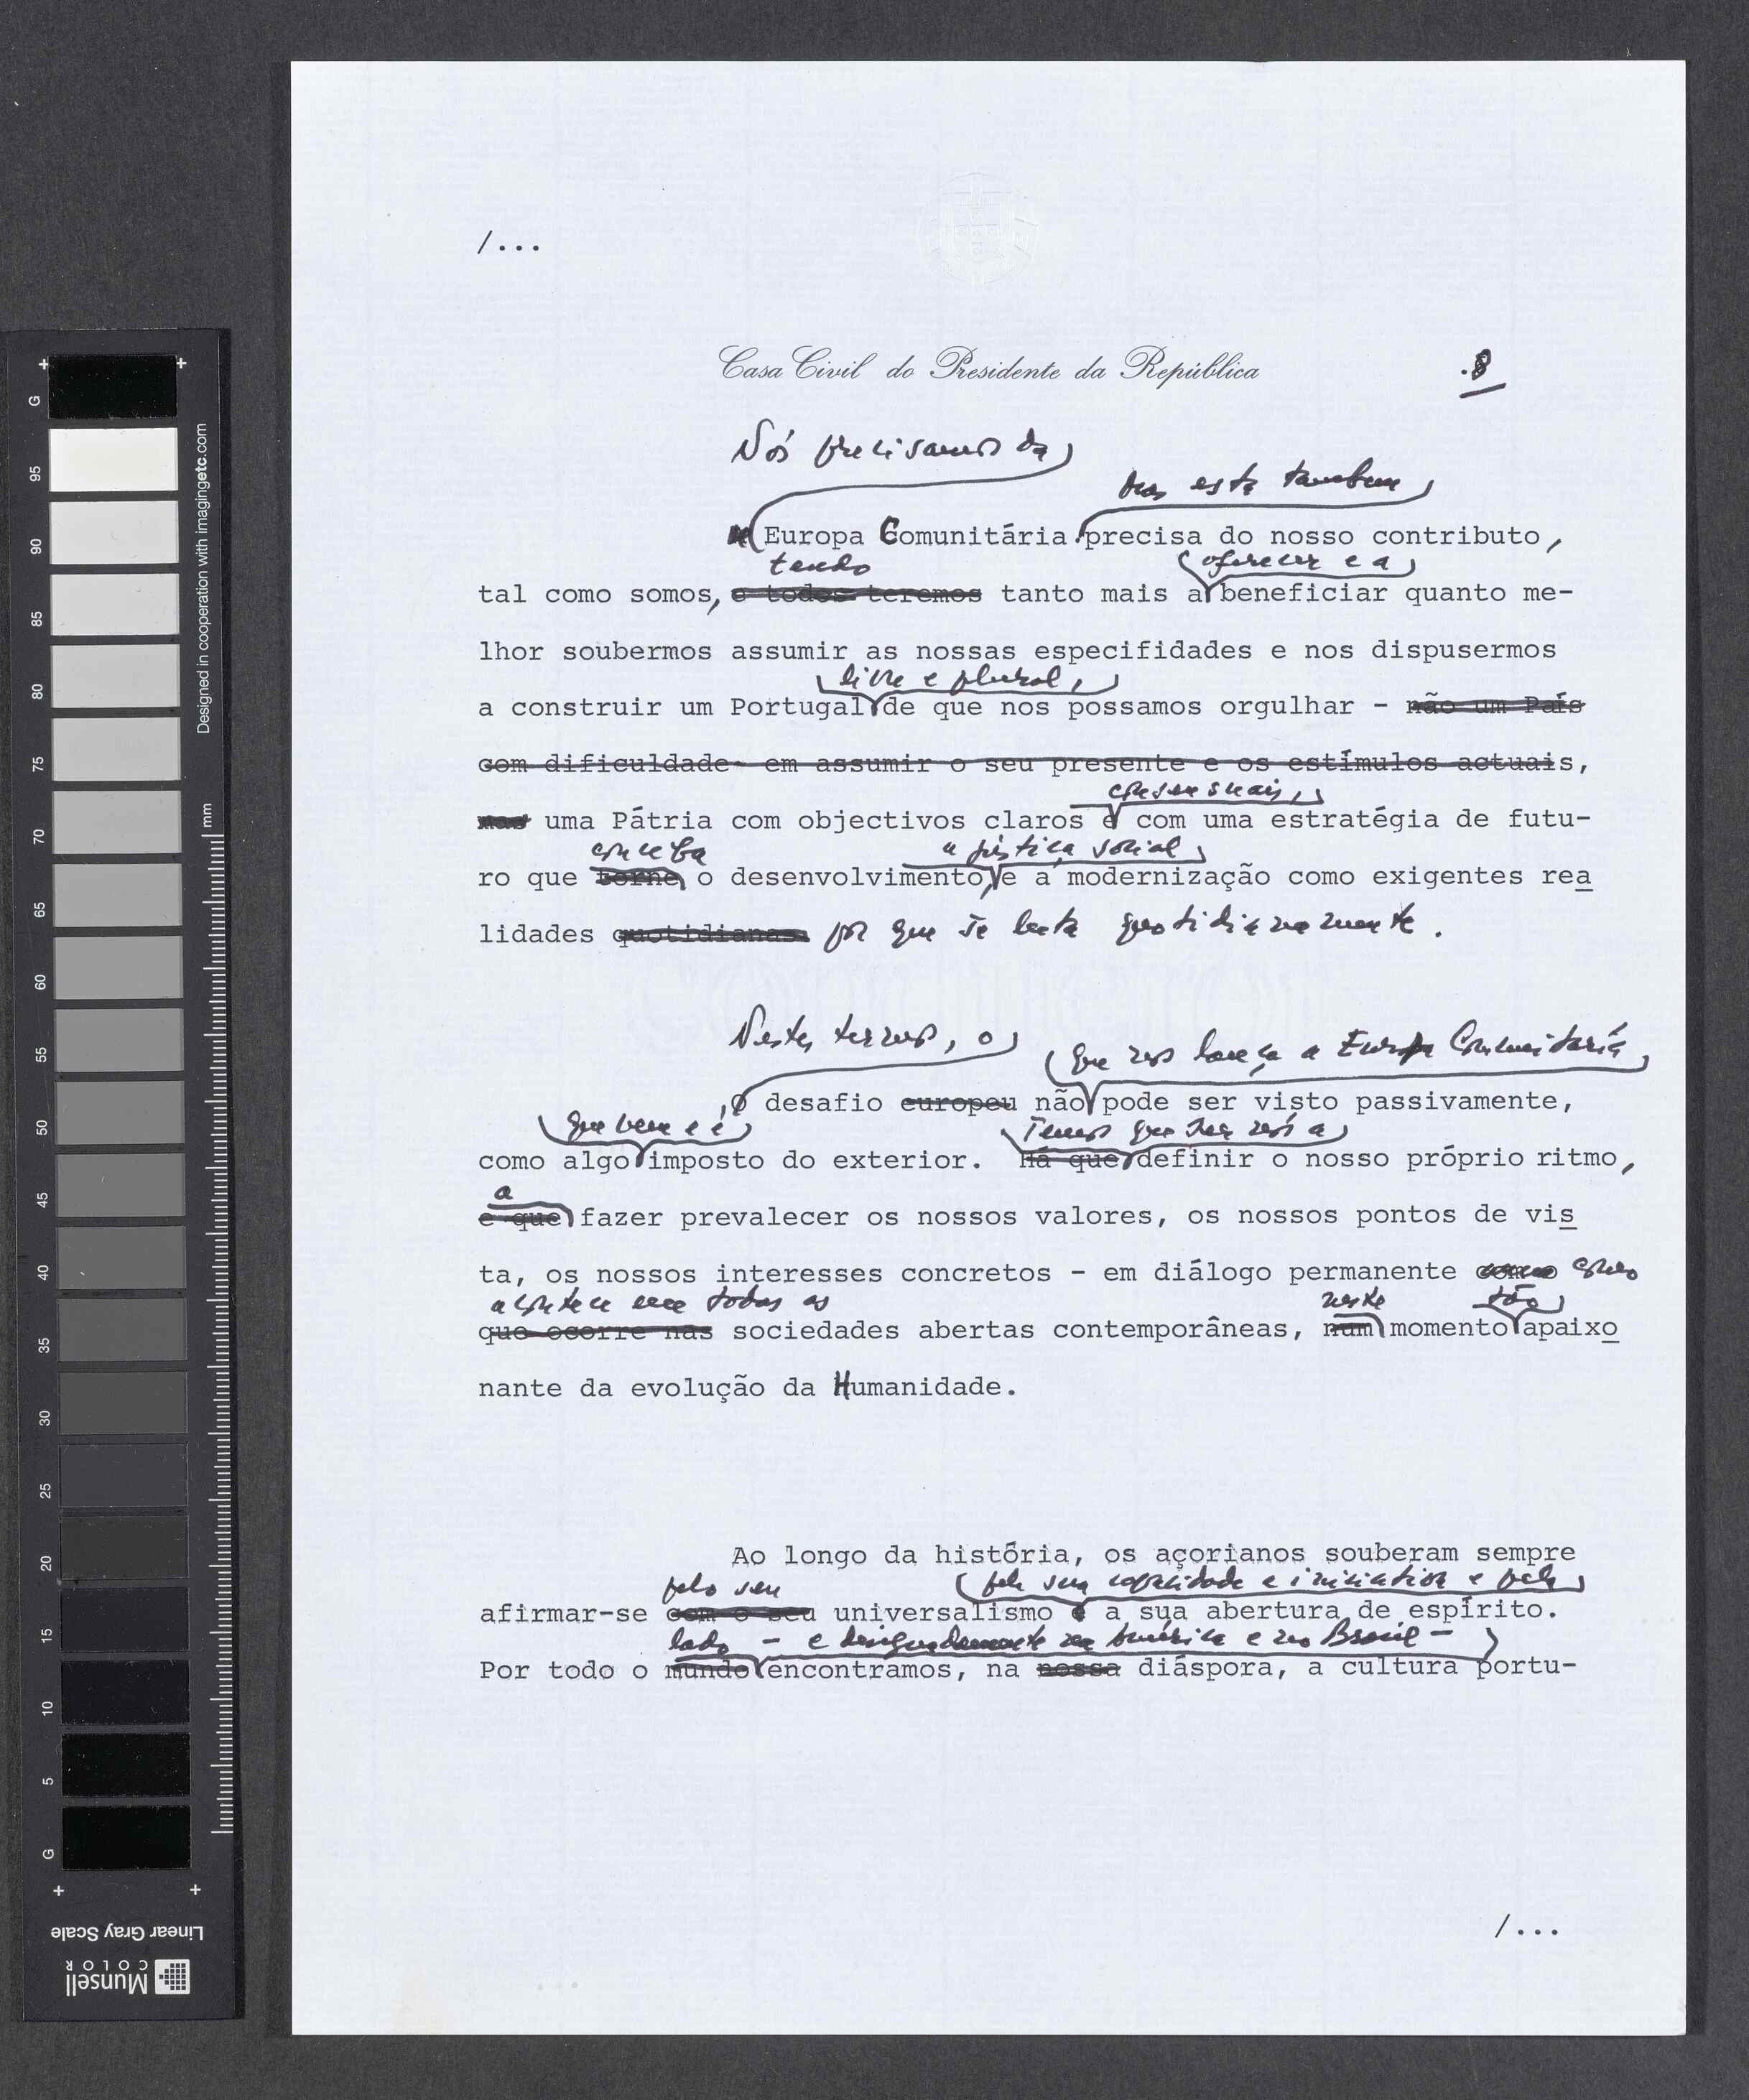 /...
Casa Civil do Presidente da República
.8
Nós precisamos da
mas esta também
A Europa Comunitária precisa do nosso contributo,
tendo
oferecer e a
tal como somos, e todos teremos tanto mais a beneficiar quanto me-
lhor soubermos assumir as nossas especifidades e nos dispusermos
livre e plural,
a construir um Portugal de que nos possamos orgulhar - não um País
com dificuldade em assumir o seu presente e os estímulos actuais,
consensuais,
mas uma Pátria com objectivos claros e com uma estratégia de futu-
conceba
a justiça social
ro que torne o desenvolvimento, e a modernização como exigentes rea
lidades quotidianas. por que se luta quotidianamente.
Nestes termos, o
que nos lança a Europa Comunitária,
O desafio europeu não pode ser visto passivamente,
que vem e é
Temos que ser nós a
como algo imposto do exterior. Há que definir o nosso próprio ritmo,
a
e que fazer prevalecer os nossos valores, os nossos pontos de vis
ta, os nossos interesses concretos - em diálogo permanente como como
acontece em todas as
neste
tão
que ocorre nas sociedades abertas contemporâneas, num momento apaixo
nante da evolução da Humanidade.
Ao longo da história, os açorianos souberam sempre
pelo seu
pela sua e iniciativa e pela
afirmar-se com o seu universalismo e a sua abertura de espírito.
lado - e designadamente na América e no Brasil -
Por todo o mundo encontramos, na nossa diáspora, a cultura portu-
/...
G
95
90
85
80
75
70
65
60
55
50
45
40
35
30
25
20
15
10
5
G
mm
Designed in cooperation with imagingetc.com
Linear Gray Scale
Munsell
COLOR